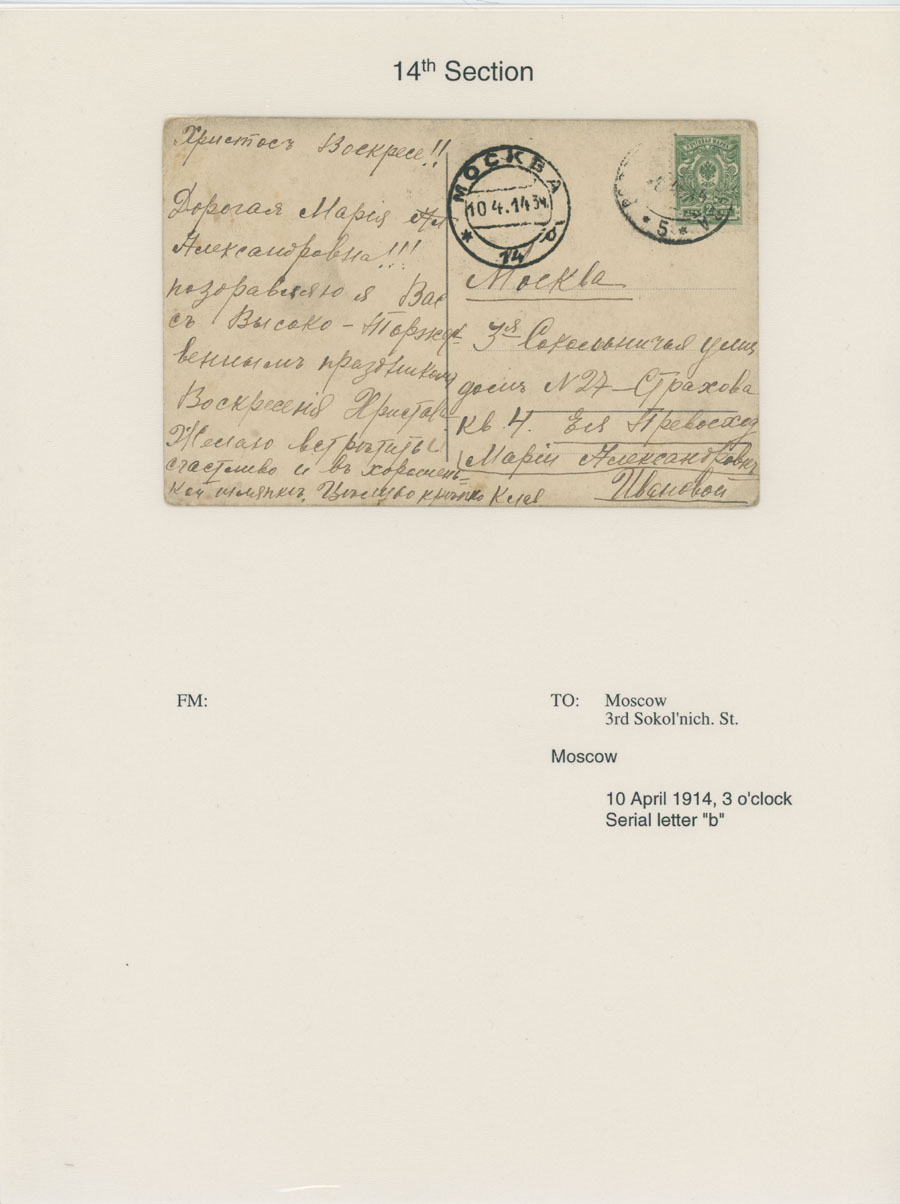 14th Section
Христосъ Воскресе!!
Дорогая Марія Ал
Александровна!!!
поздравляю я Вас
съ Высоко-Торжест
веннымъ праздникомъ
Воскресенія Христова
Желаю встрѣтить
счастливо и въ хорошень=
кой шляпкѣ. Цѣлую крѣпко
МОСКВА
10 4.14 3ч.
14
5
Москва
3я Сокольничья улиц
домъ N 27 Страхова
кв 4. Ея Превосход
Маріи Александровн
Ивановой
FM:
TO: Moscow
3rd Sokol'nich. St.
Moscow
10 April 1914, 3 o'clock
Serial letter "b"